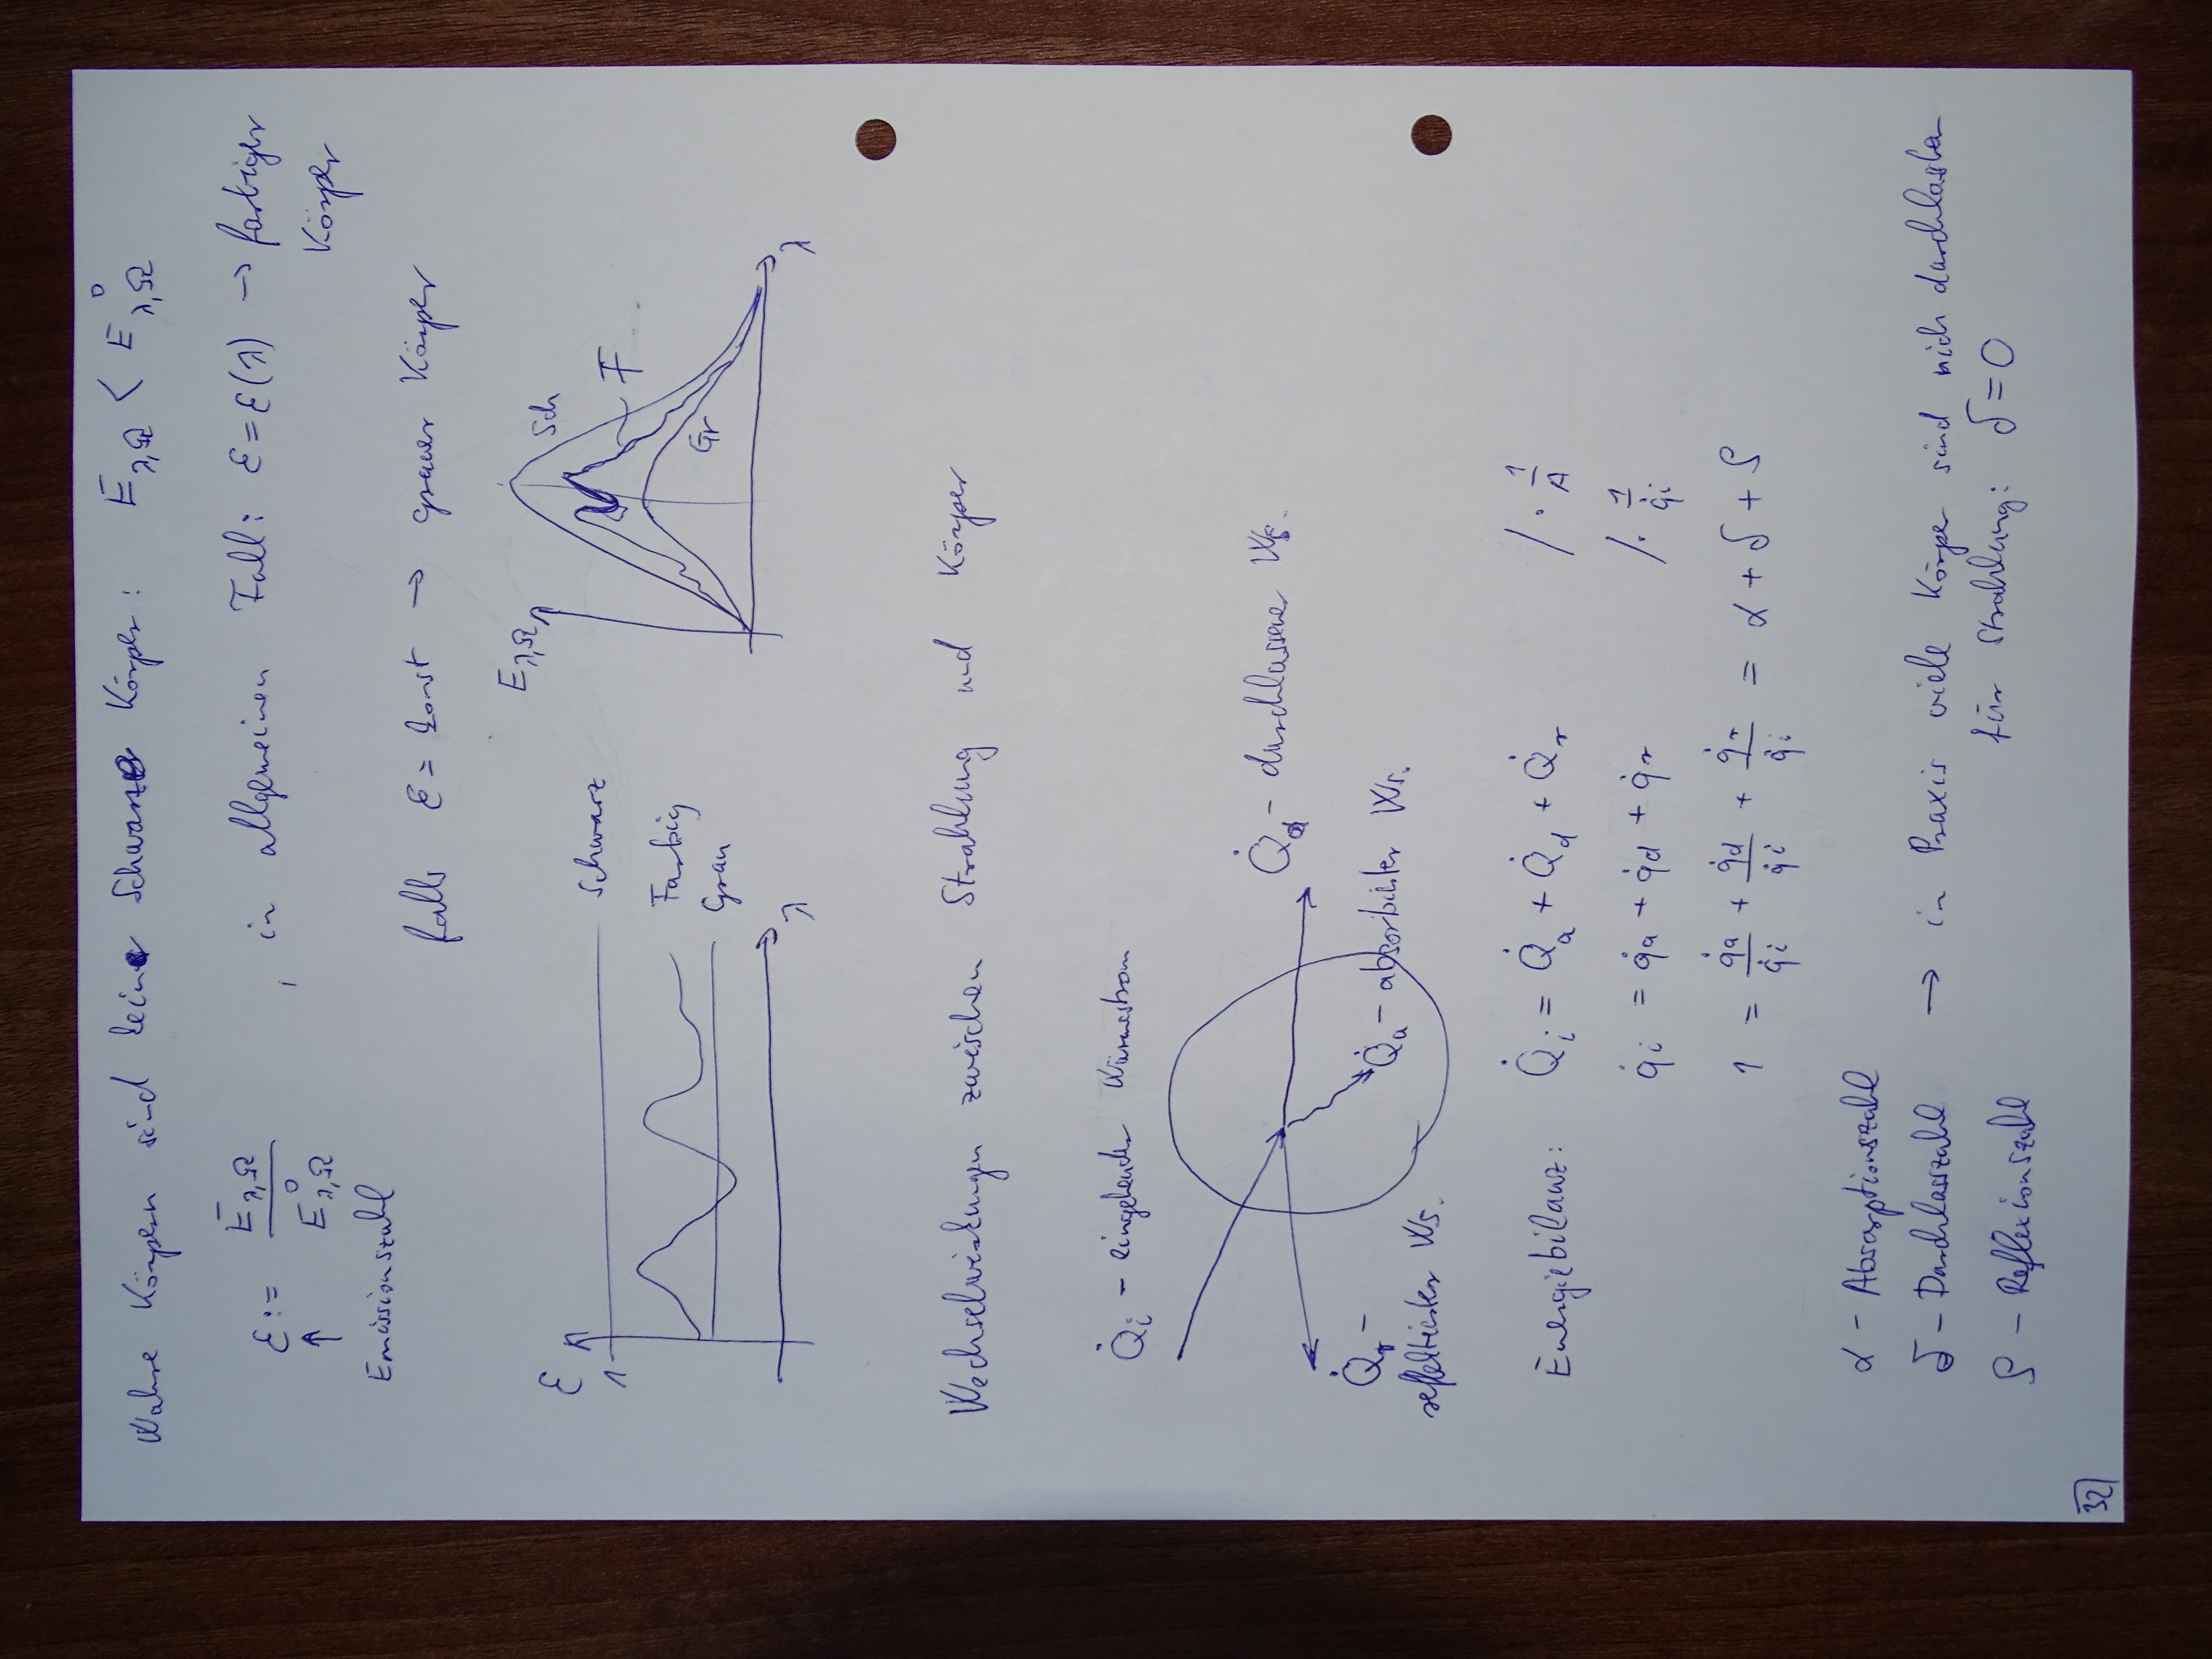 Wahre Körpern sind keine Schwarze Körper: E_λ,Ω < E°_λ,Ω
ε := E_λ,Ω / E°_λ,Ω , in allgemeinen Fall: ε = ε(λ) → farbiger Körper
↑
Emissionszahl
falls ε = konst → grauer Körper
ε
1
Schwarz
Farbig
Grau
λ
E_λ,Ω
Sch
F
Gr
λ
Wechselwirkungen zwischen Strahlung und Körper
Q̇_i – eingehender Wärmestrom
Q̇_d – durchlassener Ws.
Q̇_a – absorbierter Ws.
Q̇_r –
reflektierter Ws.
Energiebilanz: Q̇_i = Q̇_a + Q̇_d + Q̇_r /· 1/A
q̇_i = q̇_a + q̇_d + q̇_r /· 1/q̇_i
1 = q̇_a/q̇_i + q̇_d/q̇_i + q̇_r/q̇_i = α + δ + ρ
α – Absorptionszahl
δ – Durchlasszahl → in Praxis viele Körper sind nich durchlassbar
ρ – Reflexionszahl für Strahlung: δ = 0
32